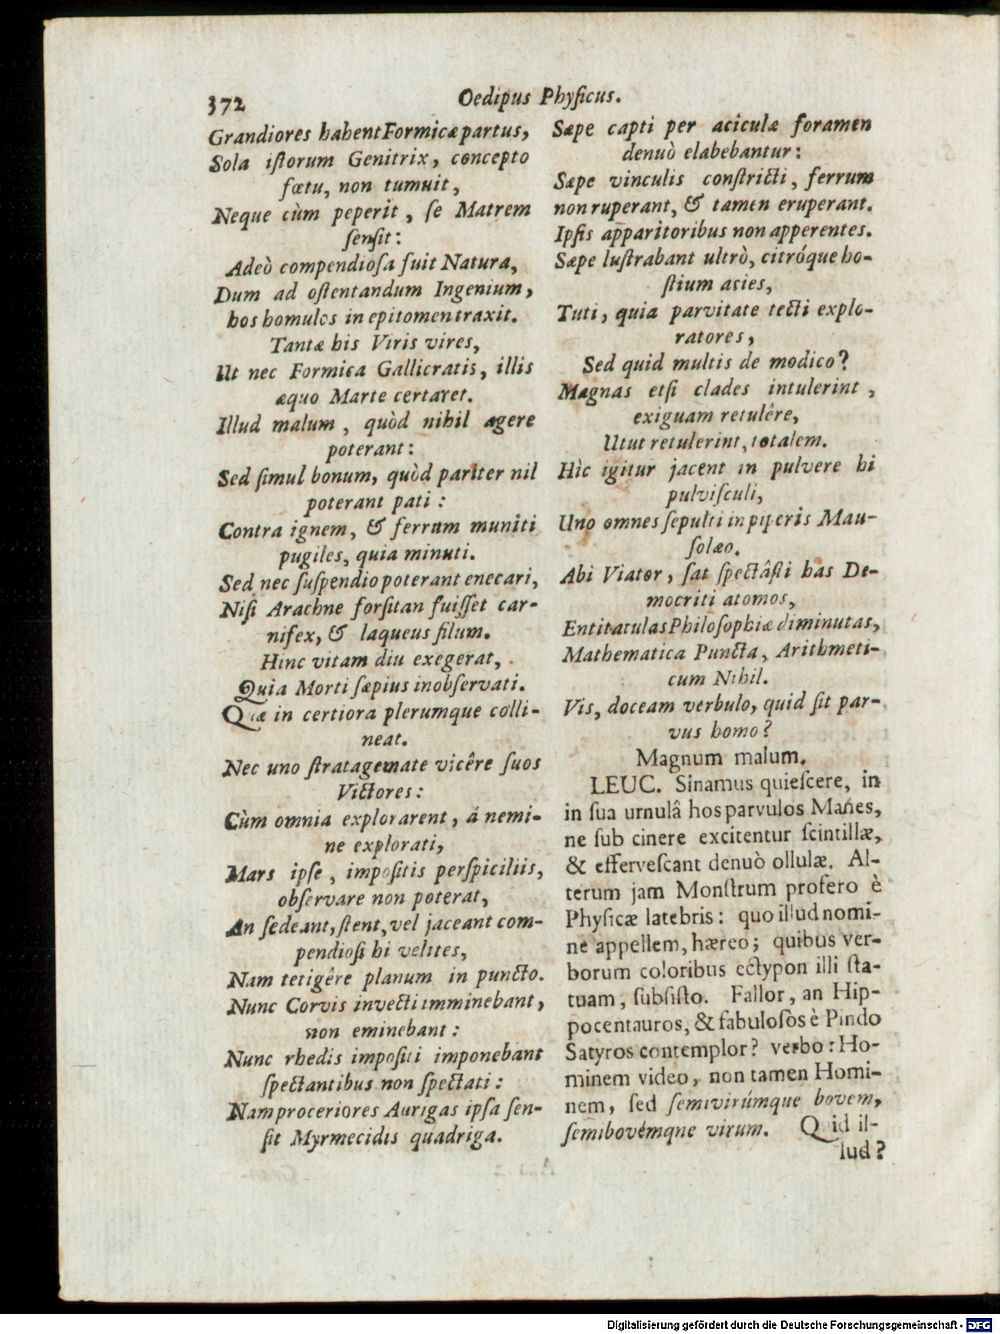 372
Oedipus Phyſicus.
Grandiores habent Formicæ partus,
Sola iſtorum Genitrix, concepto
fœtu, non tumuit,
Neque cùm peperit, ſe Matrem
ſenſit:
Adeò compendioſa fuit Natura,
Dum ad oſtentandum Ingenium,
hos homulos in epitomen traxit.
Tantæ his Viris vires,
Ut nec Formica Gallicratis, illis
æquo Marte certaret.
Illud malum, quòd nihil agere
poterant:
Sed ſimul bonum, quòd pariter nil
poterant pati:
Contra ignem, & ferrum muniti
pugiles, quia minuti.
Sed nec ſuſpendio poterant enecari,
Niſi Arachne forſitan fuiſſet car-
nifex, & laqueus filum.
Hinc vitam diu exegerat,
Quia Morti ſæpius inobſervati.
Quæ in certiora plerumque colli-
neat.
Nec uno ſtratagemate vicêre ſuos
Victores:
Cùm omnia explorarent, á nemi-
ne explorati,
Mars ipſe, impoſitis perſpiciliis,
obſervare non poterat,
An ſedeant, ſtent, vel jaceant com-
pendioſi hi velites,
Nam tetigêre planum in puncto.
Nunc Corvis invecti imminebant,
non eminebant:
Nunc rhedis impoſiti imponebant
ſpectantibus non ſpectati:
Nam proceriores Aurigas ipſa ſen-
ſit Myrmecidis quadriga.
Sæpe capti per aciculæ foramen
denuò elabebantur:
Sæpe vinculis conſtricti, ferrum
non ruperant, & tamen eruperant.
Ipſis apparitoribus non apperentes.
Sæpe luſtrabant ultrò, citróque ho-
ſtium acies,
Tuti, quia parvitate tecti explo-
ratores,
Sed quid multis de modico?
Magnas etſi clades intulerint,
exiguam retulêre,
Utut retulerint, totalem.
Hìc igitur jacent in pulvere hi
pulviſculi,
Uno omnes ſepulti in piperis Mau-
ſolæo.
Abi Viator, ſat ſpectâſti has De-
mocriti atomos,
Entitatulas Philoſophiæ diminutas,
Mathematica Puncta, Arithmeti-
cum Nihil.
Vis, doceam verbulo, quid ſit par-
vus homo?
Magnum malum.
LEUC. Sinamus quieſcere, in
in ſua urnulâ hos parvulos Manes,
ne ſub cinere excitentur ſcintillæ,
& efferveſcant denuò ollulæ. Al-
terum jam Monſtrum profero è
Phyſicæ latebris: quo illud nomi-
ne appellem, hæreo; quibus ver-
borum coloribus ectypon illi ſta-
tuam, ſubſiſto. Fallor, an Hip-
pocentauros, & fabuloſos è Pindo
Satyros contemplor? verbo: Ho-
minem video, non tamen Homi-
nem, ſed ſemivirúmque bovem,
ſemibovémque virum. Quid il-
lud?
Digitalisierung gefördert durch die Deutsche Forschungsgemeinschaft - DFG